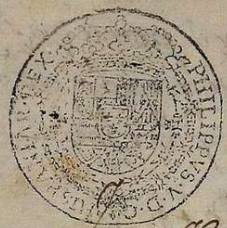 PHILIPPUS V D G
HISPANIAR REX